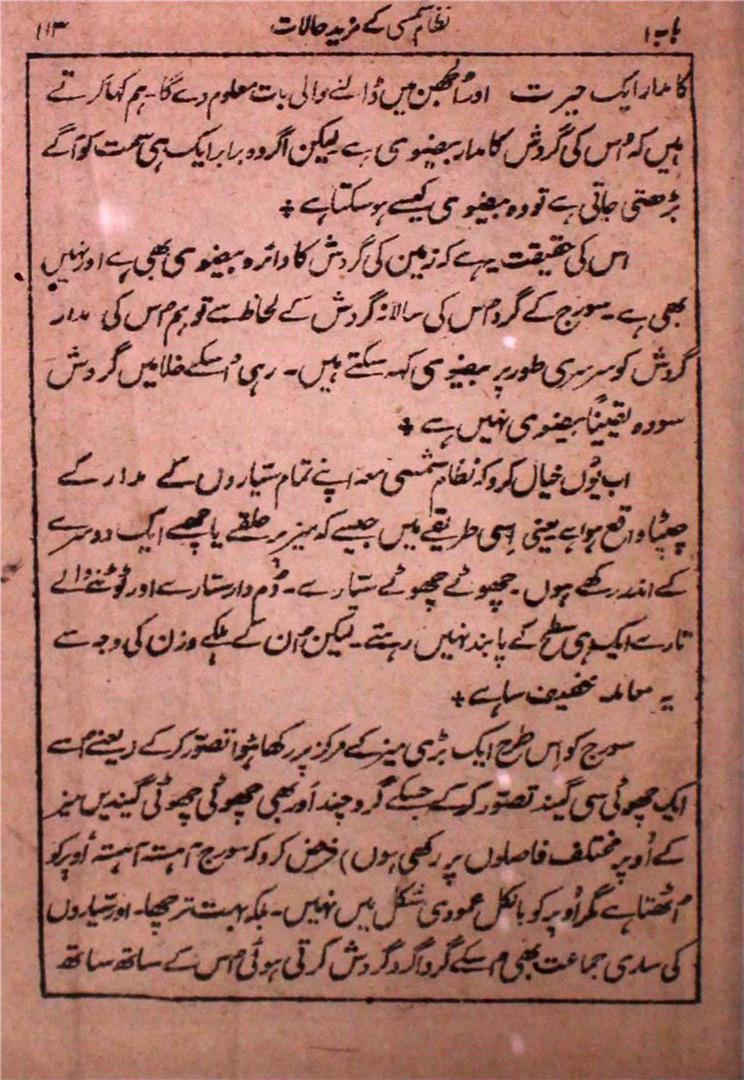 باب ۱ نظام شمسی کے مزید حالات ۱۱۳
کا مدار ایک حیرت اور اُلجھن میں ڈالنے والی بات معلوم دے گا۔ ہم کہا کرتے
ہیں کہ اُس کی گردش کا مدار بیضوی ہے لیکن اگر وہ برابر ایک ہی سمت کو آگے
بڑھتی جاتی ہے تو وہ بیضوی کیسے ہو سکتا ہے +
اس کی حقیقت یہ ہے کہ زمین کی گردش کا دائرہ بیضوی بھی ہے اور نہیں
بھی ہے۔ سورج کے گرد اُس کی سالانہ گردش کے لحاظ سے تو ہم اس کی مدار
گردش کو سرسری طور پر بیضوی کہہ سکتے ہیں۔ رہی اُسکے خلا میں گردش
سو وہ یقیناً بیضوی نہیں ہے +
اب یُوں خیال کرو کہ نظام شمسی معہ اپنے تمام ستیاروں کے مدار کے
چپٹا واقع ہوا ہے یعنی اِسی طریقے میں جیسے کہ میز پر حلقے یا چھلے ایک دوسرے
کے اندر رکھے ہوں۔ چھوٹے چھوٹے ستیارے۔ دُم دار ستارے اور ٹوٹنے والے
تارے ایک ہی سطح کے پابند نہیں رہتے۔ لیکن اُن کے ہلکے وزن کی وجہ سے
یہ معاملہ خفیف سا ہے +
سورج کو اِس طرح ایک بڑی میز کے مرکز پر رکھا ہُوا تصوّر کر کے (یعنے اُسے
ایک چھوٹی سی گیند تصوّر کر کے جسکے گرد چند اَور بھی چھوٹی چھوٹی گیندیں میز
کے اُوپر مختلف فاصلوں پر رکھی ہوں) فرض کرو کہ سورج آہستہ آہستہ اُوپر کو
اُٹھتا ہے مگر اُوپر کو بالکل عمودی شکل میں نہیں۔ بلکہ بہت ترچھا۔ اور ستیاروں
کی ساری جماعت بھی اُسکے گردا گرد گردش کرتی ہوئی اُس کے ساتھ ساتھ